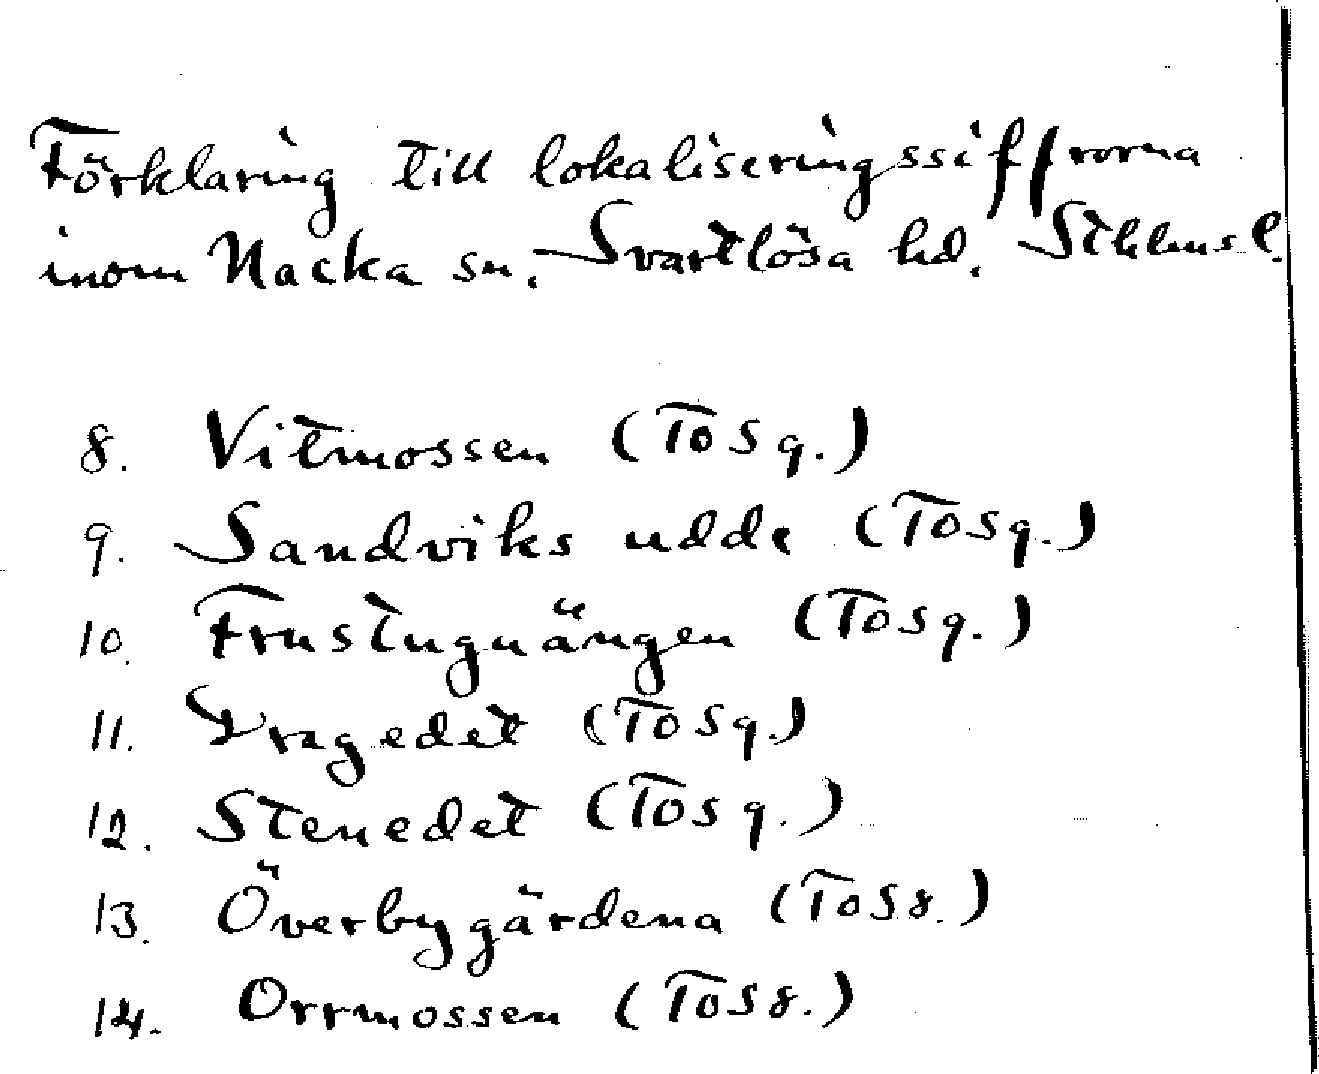 Förklaring till lokaliseringssiffrorna
inom Nacka sn. Svartlösa hd. Sthlms l.
8. Vitmossen (ToS 9.)
9. Sandviks udde (ToS 9.)
10. Frustugnängen (ToS 9.)
11. Dragedet (ToS 9.)
12. Stenedet (ToS 9.)
13. Överbygärdena (ToS 8.)
14. Orrmossen (ToS 8.)